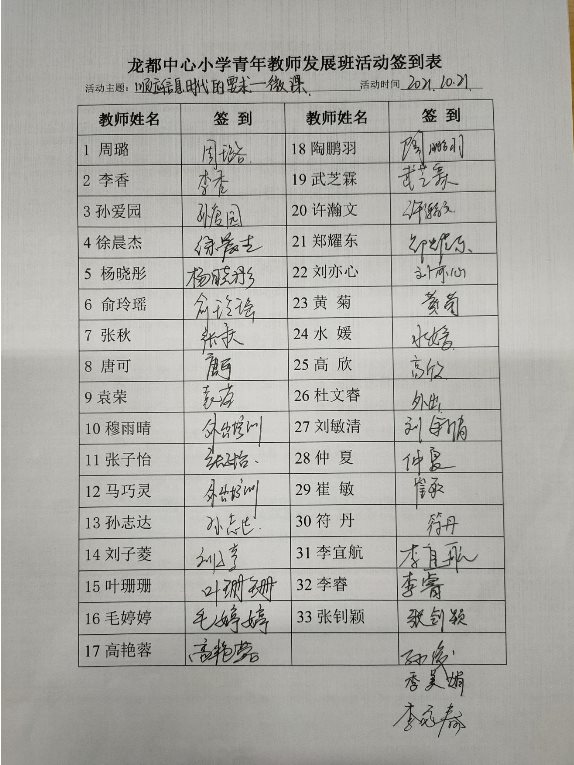 龙都中心小学青年教师发展班活动签到表
活动主题: 顺应信息时代的要求—微课 活动时间 2021.10.21.
教师姓名 签 到 教师姓名 签 到
1 周璐 周璐 18 陶鹏羽 陶鹏羽
2 李香 李香 19 武芝霖 武芝霖
3 孙爱园 孙爱园 20 许瀚文 许瀚文
4 徐晨杰 徐晨杰 21 郑耀东 郑耀东
5 杨晓彤 杨晓彤 22 刘亦心 刘亦心
6 俞玲瑶 俞玲瑶 23 黄 菊 黄菊
7 张秋 张秋 24 水 媛 水媛
8 唐可 唐可 25 高 欣 高欣
9 袁荣 袁荣 26 杜文睿 外出
10 穆雨晴 外出培训 27 刘敏清 刘敏清
11 张子怡 张子怡 28 仲 夏 仲夏
12 马巧灵 外出培训 29 崔 敏 崔敏
13 孙志达 孙志达 30 符 丹 符丹
14 刘子菱 刘子菱 31 李宜航 李宜航
15 叶珊珊 叶珊珊 32 李睿 李睿
16 毛婷婷 毛婷婷 33 张钊颖 张钊颖
17 高艳蓉 高艳蓉 孙俊
季美娟